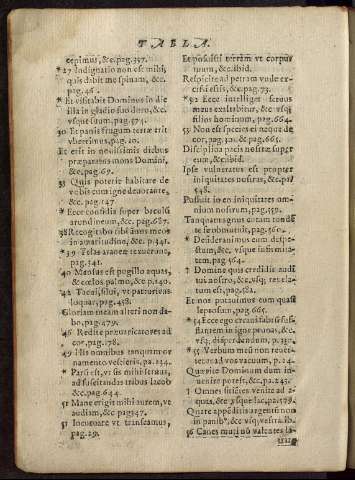 TABLA.
cepimus, &c. pag. 357.
* 27 Indignatio non est mihi,
quis dabit me spinam, &c.
pag. 46.
Et visitabit Dominus in die
illa in gladio suo duro, &c.
vsque suum, pag. 574.
30 Et panis frugum terræ erit
vberrimus, pag. 10.
Et erit in nouissimis diebus
præparatus mons Domini,
&c. pag. 69.
33 Quis poterit habitare de
vobis cum igne deuorante,
&c. pag. 147
* Ecce confidis super baculũ
arundineum, &c. pag. 667.
38 Recogitabo tibi ãnnos meos
in amaritudine, &c. p. 341.
* 39 Telas araneæ texuerunt,
pag. 341.
40 Mensus est pugillo aquas,
& cœlos palmo, &c. p. 140.
42 Tacui, silui, vt parturiens
loquar, pag. 458.
Gloriam meam alteri non da-
bo, pag. 479.
46 Redite præuaricatores ad
cor, pag. 178.
49 His omnibus tanquam or
namento vestieris, pa. 134.
* Parũ est, vt sis mihi seruus,
ad suscitandas tribus Iacob
&c. pag. 634.
51 Mane erigit mihi aurem, vt
audiam, &c. pag. 147.
51 Incuruare vt transeamus,
pag. 29.
Et posuisti terram vt corpus
tuum, &c. ibid.
Respicite ad petram vnde ex-
cisi estis, &c. pag. 73.
* 52 Ecce intelliget seruus
meus exaltabitur, &c. vsq;
filios hominum, pag. 664.
53 Non est species ei neque de
cor, pag. 321. & pag. 665.
Disciplina pacis nostræ super
eum, &c. ibid.
Ipse vulneratus est propter
iniquitates nostras, &c. pa.
548.
Posuit in eo iniquitates om-
nium nostrum, pag. 559.
Tanquam agnus coram tondẽ
te se obmutuit, pag. 560.
* Desiderauimus eum despe-
ctum, &c. vsque infirmita-
tem, pag. 564.
† Domine quis credidit audi
tui nostro, &c. vsq; vt rela-
tum est, pag. 582.
Et nos putauimus eum quasi
leprosum, pag. 665.
* 54 Ecce ego creaui fabrũ suf-
flantem in igne prunas, &c.
vsq; disperdendum, p. 331.
* 55 Verbum meũ non reuer-
tetur ad vos vacuum, p. 24.
Quærite Dominum dum in-
uenire potest, &c. pa. 243.
† Omnes sitientes venite ad a-
quas, &c vsque lac, pa. 579.
Quare appẽditis argentũ non
in panib', &c. vsq; vestra. ib.
56 Canes muti nõ valentes la-